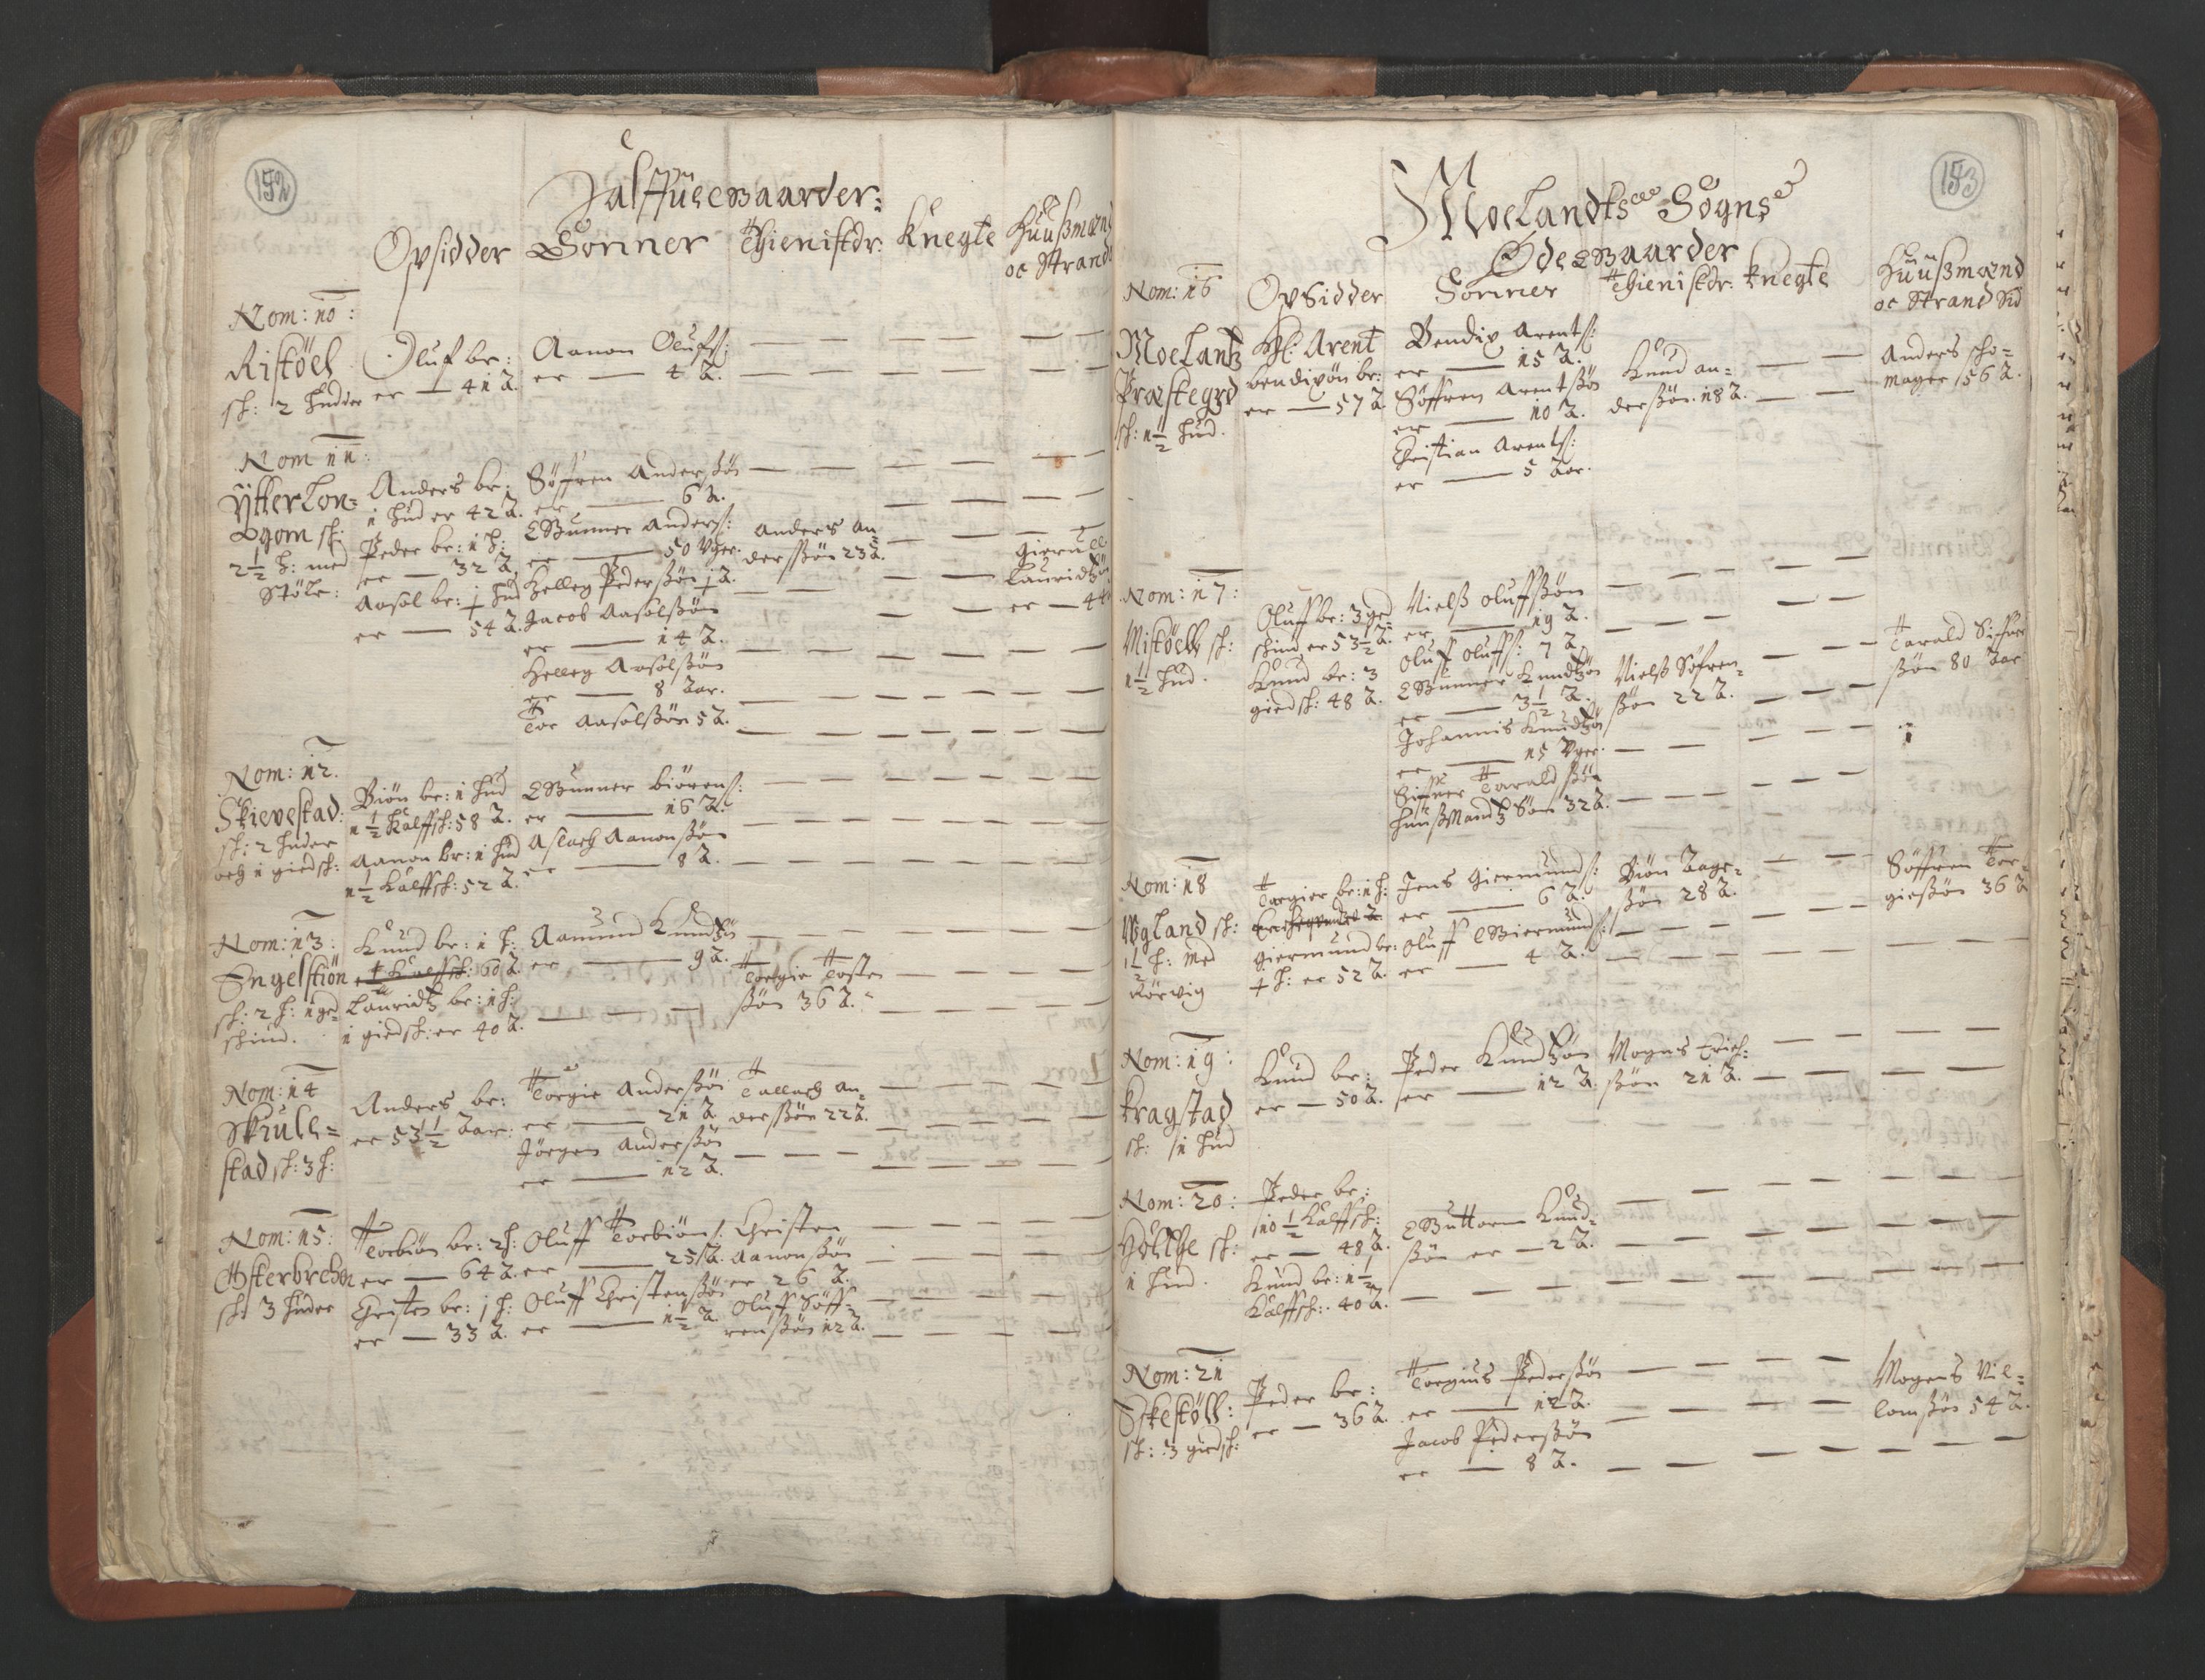 152
Halffue Gaarder:
Opsidder Sönner Thienistdr: Knegte Huußmænd
oc Strand
Nom: 10:
Ristöel
sk: 2 Huder
Oluf br:
er — 41 A.
Aanon Olufs:
er — 4 A.
Nom 11:
Ytterlon=
gom sk:
2½ h: med
Stöle:
Anders br:
1 hud er 42 A.
Peder br: 1 h:
er — 32 A.
Aasol br: ½ hud
er — 54 A.
Söffren Anderssön
er — 6 A.
Gunner Anders:
er — 50 Vger.
Helleg Pederssön j A.
Jacob Aasolssön
er — 14 A.
Helleg Aasolssön
er — 8 Aar.
Tor Aasolssön 5 A.
Anders An=
derssön 23 A.
Lauridtzön
er — 44
Nom: 12.
Skievestad:
sk: 2 huder
och 1 giedsk:
Biön br: 1 hud
1½ Kalffsk: 58 A.
Aanon br: 1 hud
1½ Kalffsk: 52 A.
Gunner biörens:
er — 16 A.
Aslach Aanonssön
er — 8 A.
Nom: 13:
Ingelstiön
sk: 2 h: 1 ged
schind.
Knud br: 1 h:
1 Kalffsk: 60 A.
Lauridtz br: 1 h:
1 giedsk: er 40 A.
Aamund Knudtzön
er — 9 A.
Torgie Toste
ssön 36 A.
Nom: 14
Skrull=
stad sk: 3 h:
Anders br:
er 53½ Aar:
Torgie Anderssön
er — 21 A.
Jörgen Anderssön
er — 12 A.
Tallach An=
derssön 22 A.
Nom: 15:
Østerbrecke
sk: 3 huder
Torbiön br: 2 h:
er — 64 A.
Christen br: 1 h:
er — 33 A.
Oluff Torbiöns:
er — 25 A.
Oluff Christenssön
er — 1½ A.
Christen
Aanonssön
er 26 A.
Oluff Söff=
renssön 12 A.
153
Moelandts Sogns
Øde Gaarder
Nom: 16 Opsidder Sönner Thienistdr: Knegte Huußmænd
oc Strand Sid
Moelantz
Præstegrd
sk: 1½ hud.
Hr: Arent
bendixön br:
er — 57 A.
Bendix Arents:
er — 15 A.
Söffren Arentssön
er — 10 A.
Christian Arents:
er — 5 Aar.
Knud An=
derssön. 18 A.
Anders sko=
mager 56 A.
Nom: 17:
Mistöell sk:
1½ hud.
Oluff br: 3 ged
schind er 53½ A.
Knud br: 3
giedsk: 48 A.
Nielß Oluffssön
er — 19 A.
Oluf Olufs: 7 A.
Gunner Knudtzön
er — 3½ A.
Johannis Knudtzön
er — 15 Vger.
Siffuer Taraldssön
huußmandtz Sön 32 A.
Nielß Söfren=
ssön 22 A.
Tarald Sifuer
ssön 80 Aar
Nom: 18
Ugland sk:
1½ h: med
Rörvig
Torgier br: 1 h:
giermund br:
½ h: er 52 A.
Jens Giermunds:
er — 6 A.
Oluff Giermunds:
er — 4 A.
Biön Aage=
ssön 28 A.
Söffren Tor=
giessön 36 A
Nom: 19:
Kragstad
sk: 1 hud
Knud br:
er — 50 A.
Peder Knudtzön
er — 12 A.
Mogns Erich=
ssön 21 A.
Nom: 20:
Höllhe sk:
1 hud.
Peder br:
10½ Kalffsk:
er — 48 A.
Knud br: 1½
Kalffsk: 40 A.
Guttorm Knud=
ssön er — 2 A.
Nom: 21
Skestöll:
sk: 3 giedsk:
Peder br:
er — 36 A.
Torgius Pederssön
er — 12 A.
Jacob Pederssön
er — 8 A.
Mogens Vil=
lomssön 54 A.